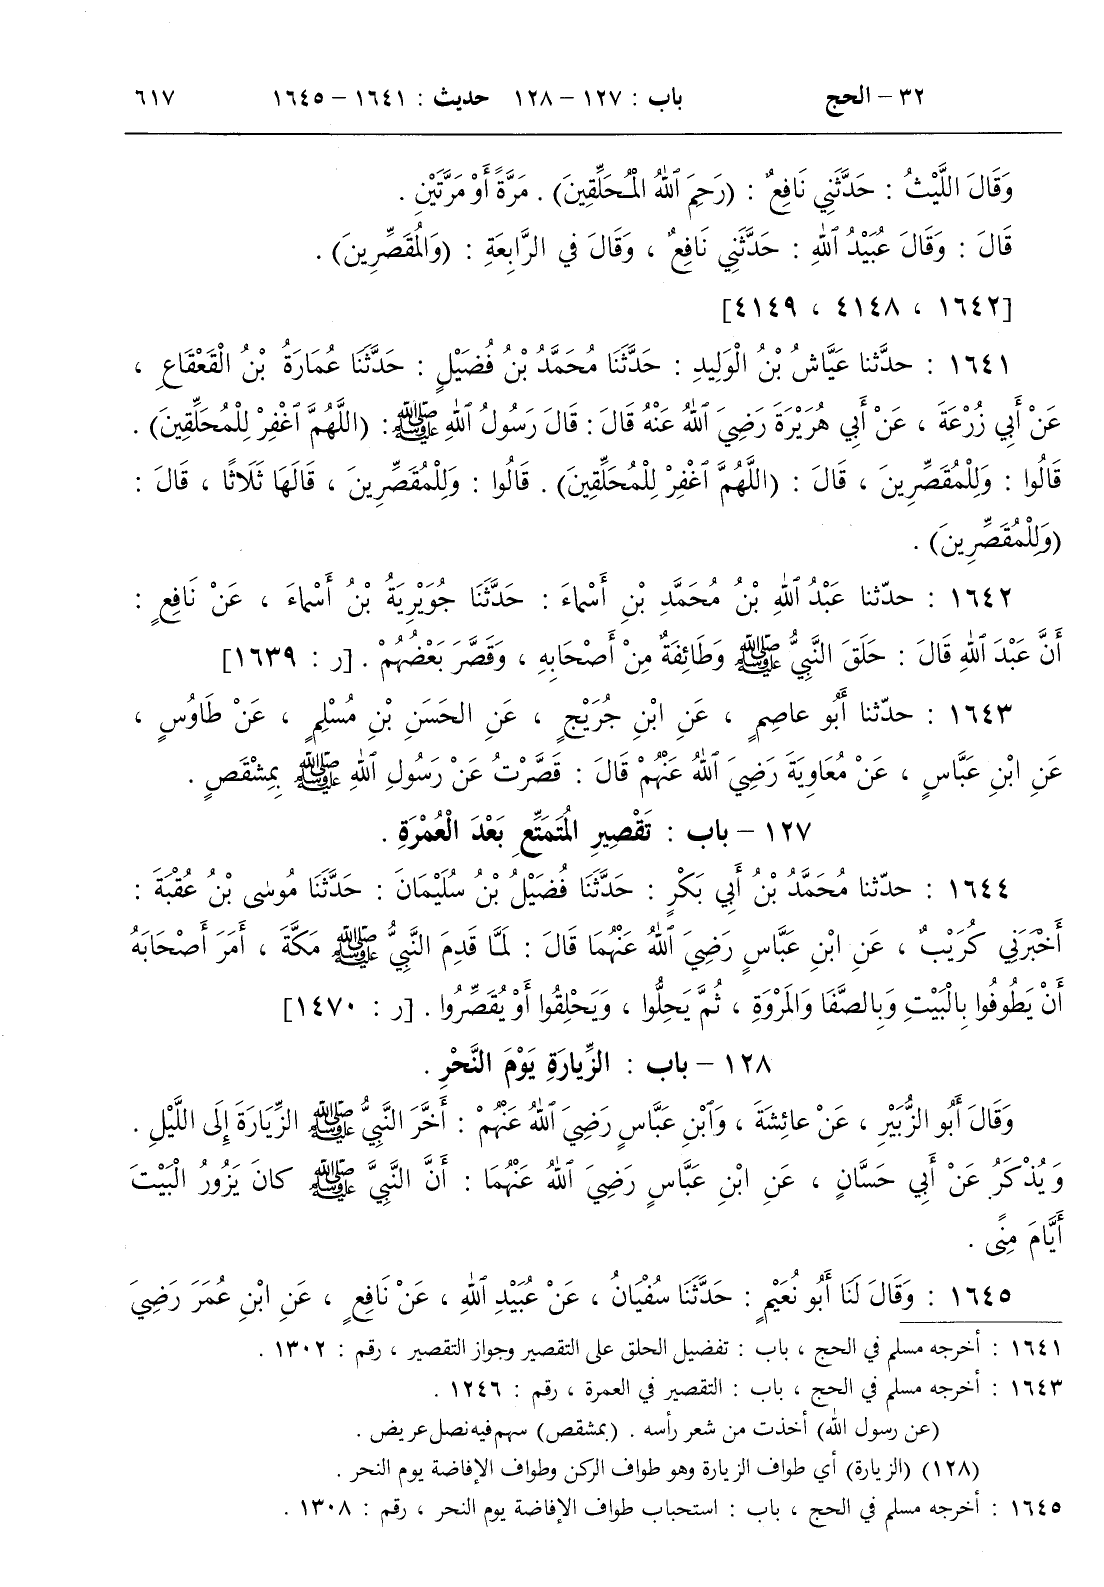 ٣٢ – الحج باب : ١٢٧ – ١٢٨ حديث : ١٦٤١ – ١٦٤٥ ٦١٧
وَقَالَ اللَّيْثُ : حَدَّثَنِي نَافِعٌ : (رَحِمَ ٱللهُ الْمُحَلِّقِينَ) . مَرَّةً أَوْ مَرَّتَيْنِ .
قَالَ : وَقَالَ عُبَيْدُ ٱللهِ : حَدَّثَنِي نَافِعٌ ، وَقَالَ فِي الرَّابِعَةِ : (وَالْمُقَصِّرِينَ) .
[١٦٤٢ ، ٤١٤٨ ، ٤١٤٩]
١٦٤١ : حدّثنا عَيَّاشُ بْنُ الْوَلِيدِ : حَدَّثَنَا مُحَمَّدُ بْنُ فُضَيْلٍ : حَدَّثَنَا عُمَارَةُ بْنُ الْقَعْقَاعِ ،
عَنْ أَبِي زُرْعَةَ ، عَنْ أَبِي هُرَيْرَةَ رَضِيَ ٱللهُ عَنْهُ قَالَ : قَالَ رَسُولُ ٱللهِ ﷺ : (اللَّهُمَّ ٱغْفِرْ لِلْمُحَلِّقِينَ) .
قَالُوا : وَلِلْمُقَصِّرِينَ ، قَالَ : (اللَّهُمَّ ٱغْفِرْ لِلْمُحَلِّقِينَ) . قَالُوا : وَلِلْمُقَصِّرِينَ ، قَالَهَا ثَلَاثًا ، قَالَ :
(وَلِلْمُقَصِّرِينَ) .
١٦٤٢ : حدّثنا عَبْدُ ٱللهِ بْنُ مُحَمَّدِ بْنِ أَسْمَاءَ : حَدَّثَنَا جُوَيْرِيَةُ بْنُ أَسْمَاءَ ، عَنْ نَافِعٍ :
أَنَّ عَبْدَ ٱللهِ قَالَ : حَلَقَ النَّبِيُّ ﷺ وَطَائِفَةٌ مِنْ أَصْحَابِهِ ، وَقَصَّرَ بَعْضُهُمْ . [ر : ١٦٣٩]
١٦٤٣ : حدّثنا أَبُو عاصِمٍ ، عَنِ ابْنِ جُرَيْجٍ ، عَنِ الحَسَنِ بْنِ مُسْلِمٍ ، عَنْ طَاوُسٍ ،
عَنِ ابْنِ عَبَّاسٍ ، عَنْ مُعَاوِيَةَ رَضِيَ ٱللهُ عَنْهُمْ قَالَ : قَصَّرْتُ عَنْ رَسُولِ ٱللهِ ﷺ بِمِشْقَصٍ .
١٢٧ – باب : تَقْصِيرِ الْمُتَمَتِّعِ بَعْدَ الْعُمْرَةِ .
١٦٤٤ : حدّثنا مُحَمَّدُ بْنُ أَبِي بَكْرٍ : حَدَّثَنَا فُضَيْلُ بْنُ سُلَيْمَانَ : حَدَّثَنَا مُوسَى بْنُ عُقْبَةَ :
أَخْبَرَنِي كُرَيْبٌ ، عَنِ ابْنِ عَبَّاسٍ رَضِيَ ٱللهُ عَنْهُمَا قَالَ : لَمَّا قَدِمَ النَّبِيُّ ﷺ مَكَّةَ ، أَمَرَ أَصْحَابَهُ
أَنْ يَطُوفُوا بِالْبَيْتِ وَبِالصَّفَا وَالمَرْوَةِ ، ثُمَّ يَحِلُّوا ، وَيَحْلِقُوا أَوْ يُقَصِّرُوا . [ر : ١٤٧٠]
١٢٨ – باب : الزِّيارَةِ يَوْمَ النَّحْرِ .
وَقَالَ أَبُو الزُّبَيْرِ ، عَنْ عائِشَةَ ، وَٱبْنِ عَبَّاسٍ رَضِيَ ٱللهُ عَنْهُمْ : أَخَّرَ النَّبِيُّ ﷺ الزِّيَارَةَ إِلَى اللَّيْلِ .
وَيُذْكَرُ عَنْ أَبِي حَسَّانٍ ، عَنِ ابْنِ عَبَّاسٍ رَضِيَ ٱللهُ عَنْهُمَا : أَنَّ النَّبِيَّ ﷺ كانَ يَزُورُ الْبَيْتَ
أَيَّامَ مِنًى .
١٦٤٥ : وَقَالَ لَنَا أَبُو نُعَيْمٍ : حَدَّثَنَا سُفْيَانُ ، عَنْ عُبَيْدِ ٱللهِ ، عَنْ نَافِعٍ ، عَنِ ابْنِ عُمَرَ رَضِيَ
١٦٤١ : أخرجه مسلم في الحج ، باب : تفضيل الحلق على التقصير وجواز التقصير ، رقم : ١٣٠٢ .
١٦٤٣ : أخرجه مسلم في الحج ، باب : التقصير في العمرة ، رقم : ١٢٤٦ .
(عن رسول الله) أخذت من شعر رأسه . (بمشقص) سهم فيه نصل عريض .
(١٢٨) (الزيارة) أي طواف الزيارة وهو طواف الركن وطواف الإفاضة يوم النحر .
١٦٤٥ : أخرجه مسلم في الحج ، باب : استحباب طواف الإفاضة يوم النحر ، رقم : ١٣٠٨ .